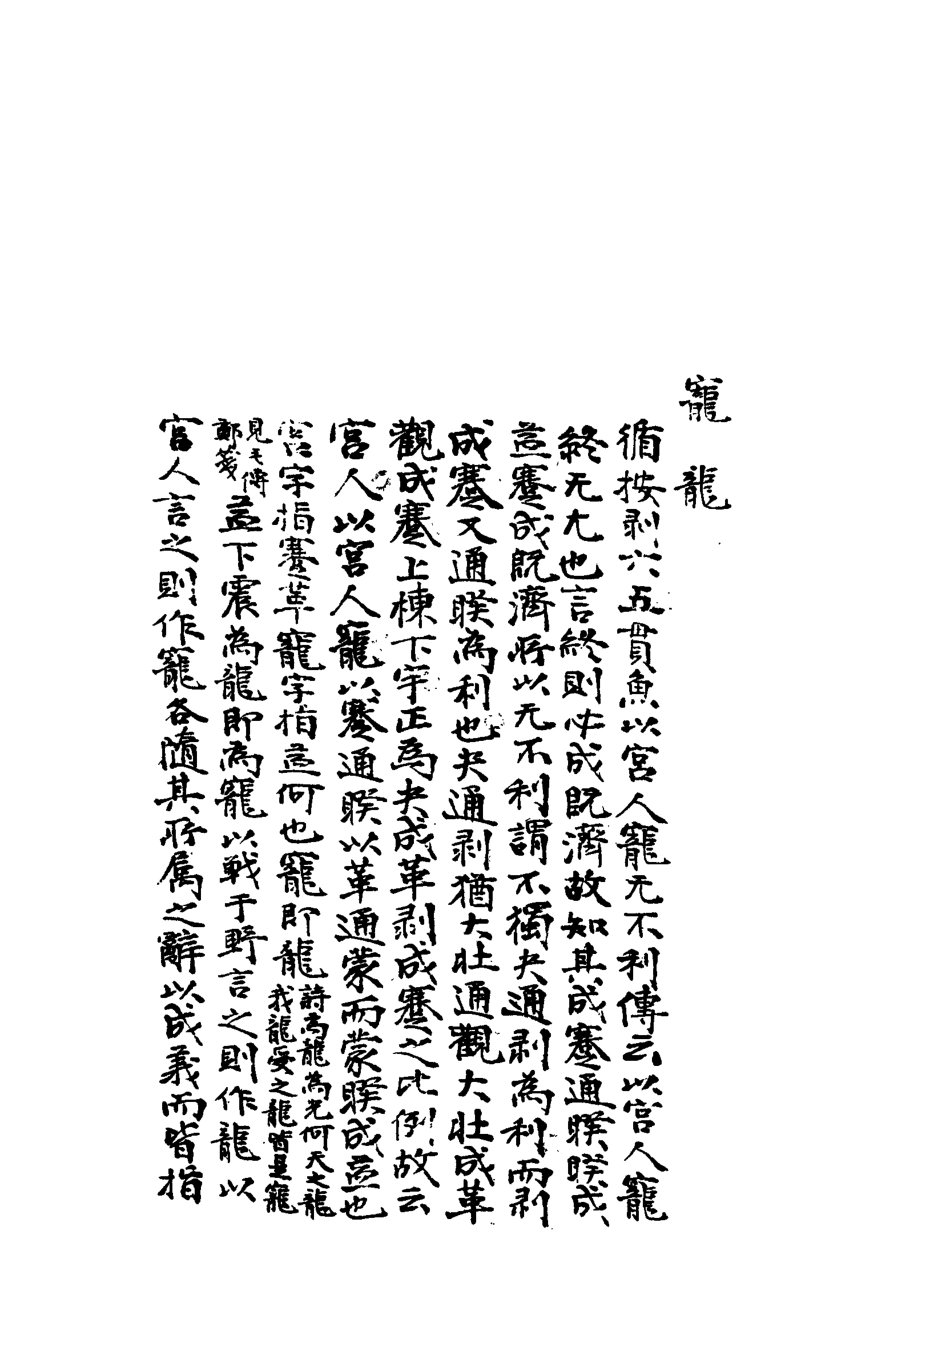 寵　龍
循按剥六五貫魚以宮人寵无不利傳云以宮人寵
終无尤也言終則必成既濟故知其成蹇通睽睽成
益蹇成既濟所以无不利謂不獨夬通剥為利而剥
成蹇又通睽為利也夬通剥猶大壯通觀大壯成革
觀成蹇上棟下宇正為夬成革剥成蹇之比例故云
宮人以宮人寵以蹇通睽以革通蒙而蒙睽成益也
宮字指蹇革寵字指益何也寵即龍詩為龍為光何天之龍
我龍受之龍皆是寵
見毛傳
鄭箋益下震為龍即為寵以戰于野言之則作龍以
宮人言之則作寵各隨其所属之辭以成義而皆指